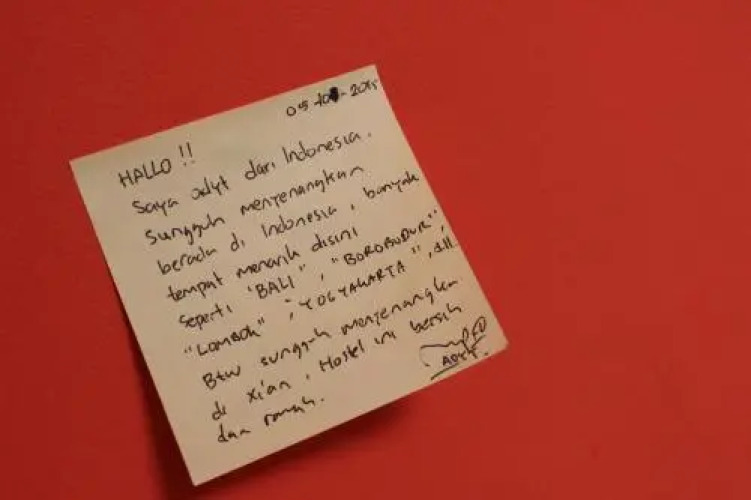 05 - 10 - 2015
HALLO !!
Saya adyt dari Indonesia.
Sungguh menyenangkan
berada di Indonesia, banyak
tempat menarik disini
seperti "BALI", "BOROBUDUR",
"LOMBOK", "YOGYAKARTA", dll.
Btw sungguh menyenangkan
di xian, Hostel ini bersih
dan ramah.
ADYT